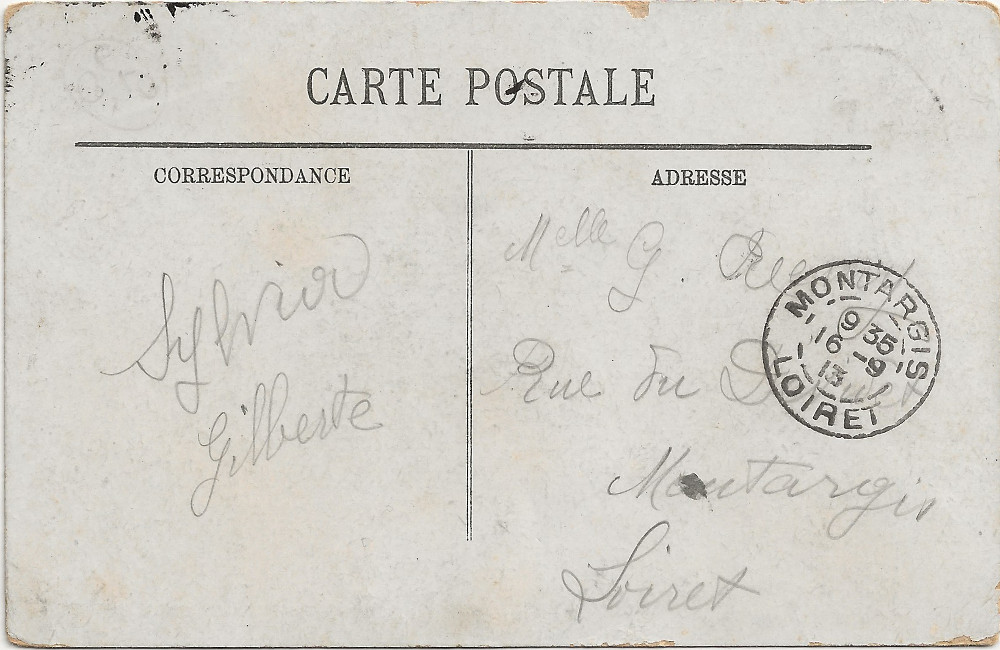 CARTE POSTALE
CORRESPONDANCE
Sylvia
Gilberte
ADRESSE
Melle G.
Rue du
Montargis
Loiret
MONTARGIS
9 35
16 -9
13
LOIRET